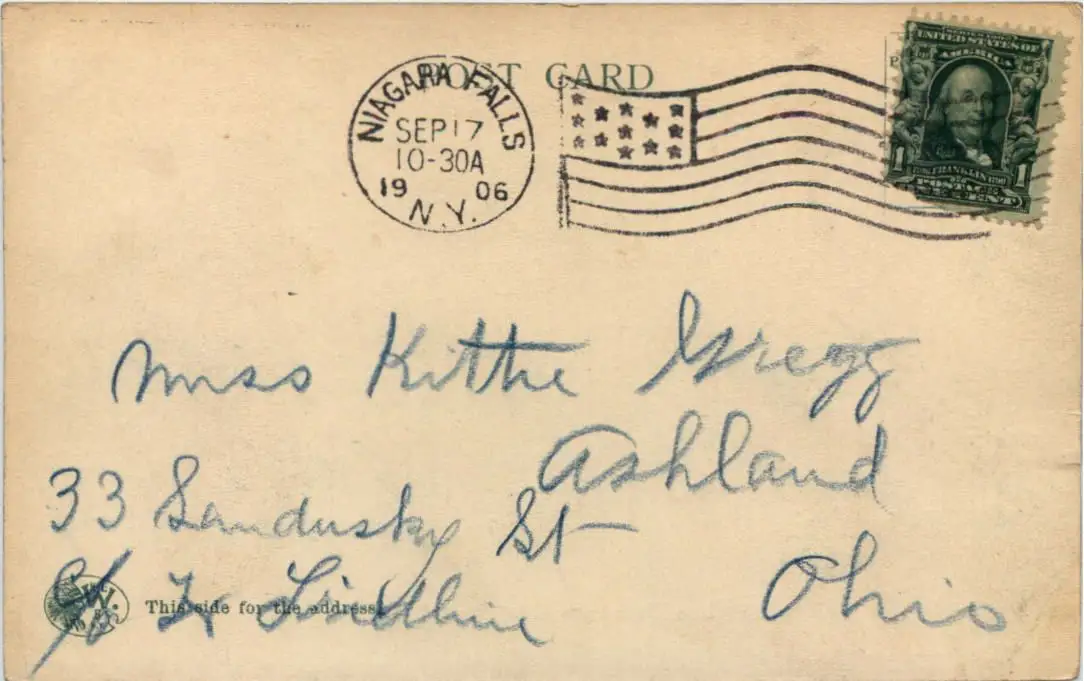 POST CARD
NIAGARA FALLS
SEP 17
10-30A
19 06
N.Y.
SERIES 1902
UNITED STATES OF
AMERICA
FRANKLIN
1 1
POSTAGE
ONE CENT
Miss Kittie Gregg
Ashland
33 Sandusky St
Ohio
This side for the address.
c/o